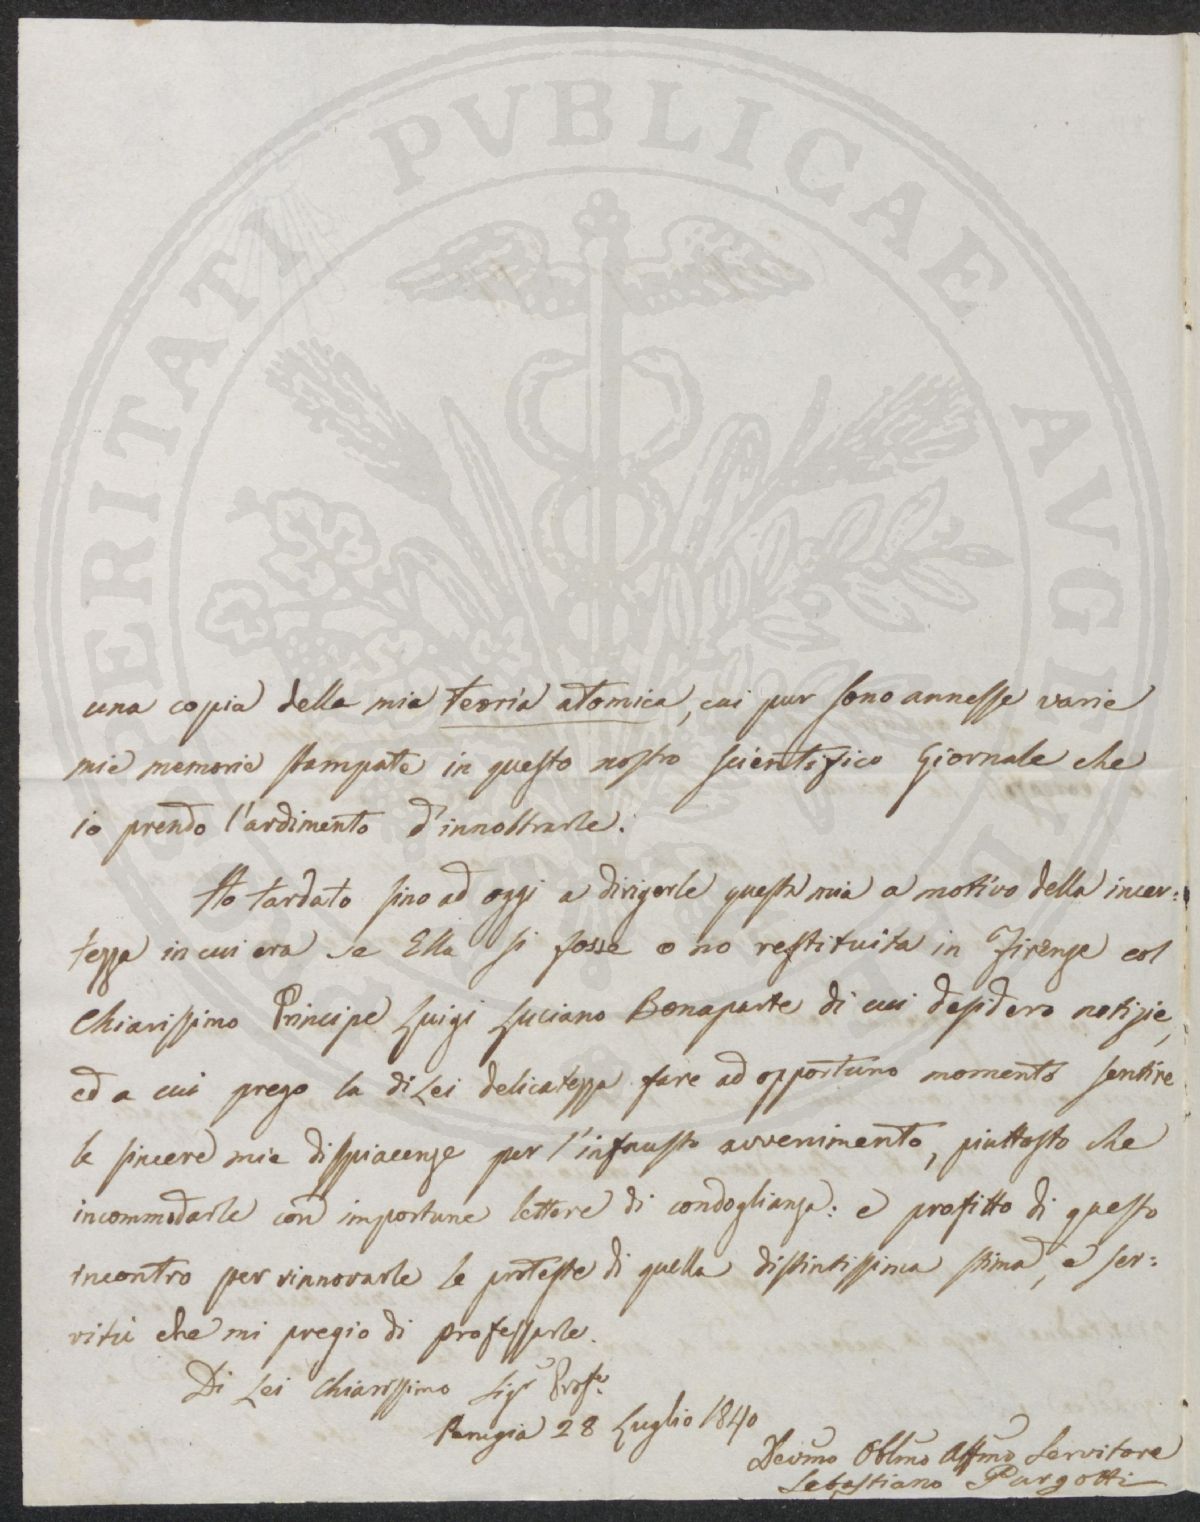 PROSPERITATI PVBLICAE AVGENDAE
una copia della mia teoria atomica, cui pur sono annesse varie
mie memorie stampate in questo nostro scientifico Giornale che
io prendo l'ardimento d'innoltrarle.
Ho tardato sino ad oggi a dirigerle questa mia a motivo della incer=
tezza in cui era se Ella si fosse o no restituita in Firenze col
Chiarissimo Principe Luigi Luciano Bonaparte di cui desidero notizie,
ed a cui prego la di Lei delicatezza fare ad opportuno momento sentire
le sincere mie dispiacenze per l'infausto avvenimento, piuttosto che
incommodarle con importune lettere di condoglianza: e profitto di questo
incontro per rinnovarle le proteste di quella distintissima stima, e ser=
vitù che mi pregio di professarle.
Di Lei Chiarissimo Sigr Profe.
Perugia 28 Luglio 1840
Devmo Obblmo Affmo Servitore
Sebastiano Purgotti